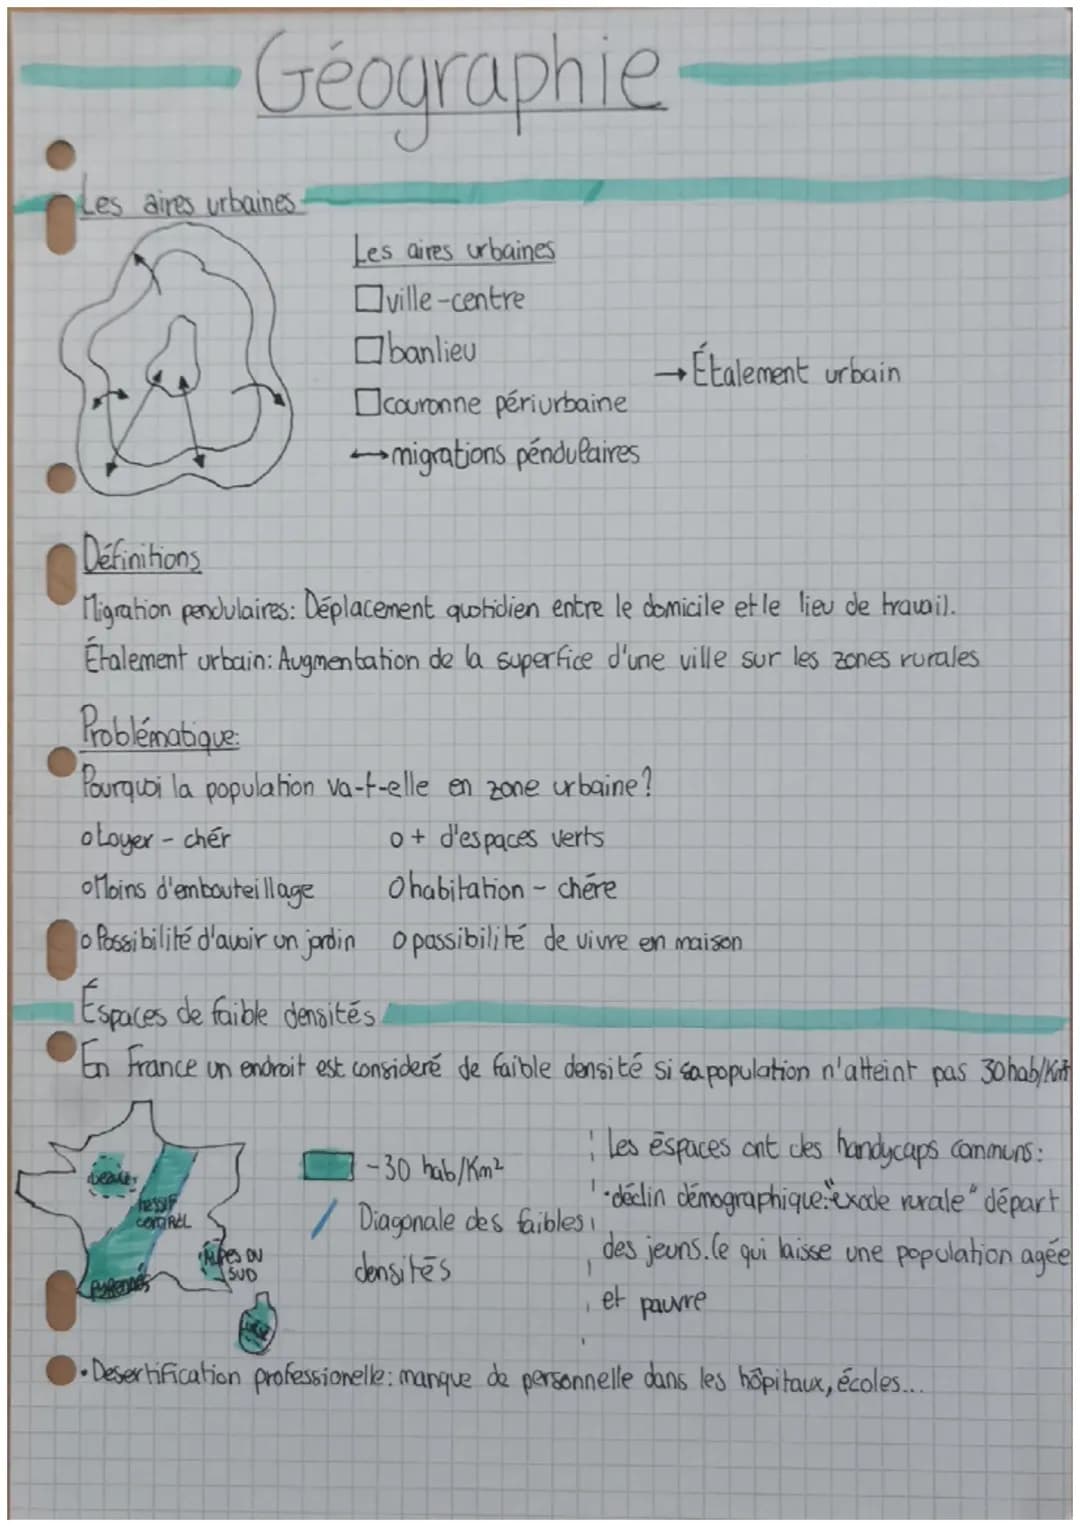 Géographie
Les aires urbaines
Les aires urbaines
ville-centre
banlieu
→ Étalement urbain
couronne périurbaine
↔ migrations péndulaires
Définitions
Migration pendulaires: Déplacement quotidien entre le domicile et le lieu de travail.
Étalement urbain: Augmentation de la superfice d'une ville sur les zones rurales
Problématique:
Pourquoi la population va-t-elle en zone urbaine?
o Loyer - chér
o + d'espaces verts
o Moins d'embouteillage
o habitation - chére
o Possibilité d'avoir un jardin
o possibilité de vivre en maison
Éspaces de faible densités
En France un endroit est consideré de faible densité si sa population n'atteint pas 30 hab/Km²
MASSIF
CENTRAL
ALPES DU
SUD
PYRENNÉS
CORSE
-30 hab/Km²
Diagonale des faibles
densités
Les éspaces ont des handycaps communs:
·déclin démographique:"exode rurale" départ
des jeuns. Ce qui laisse une population agée
et pauvre
· Desertification professionelle: manque de personnelle dans les hôpitaux, écoles...